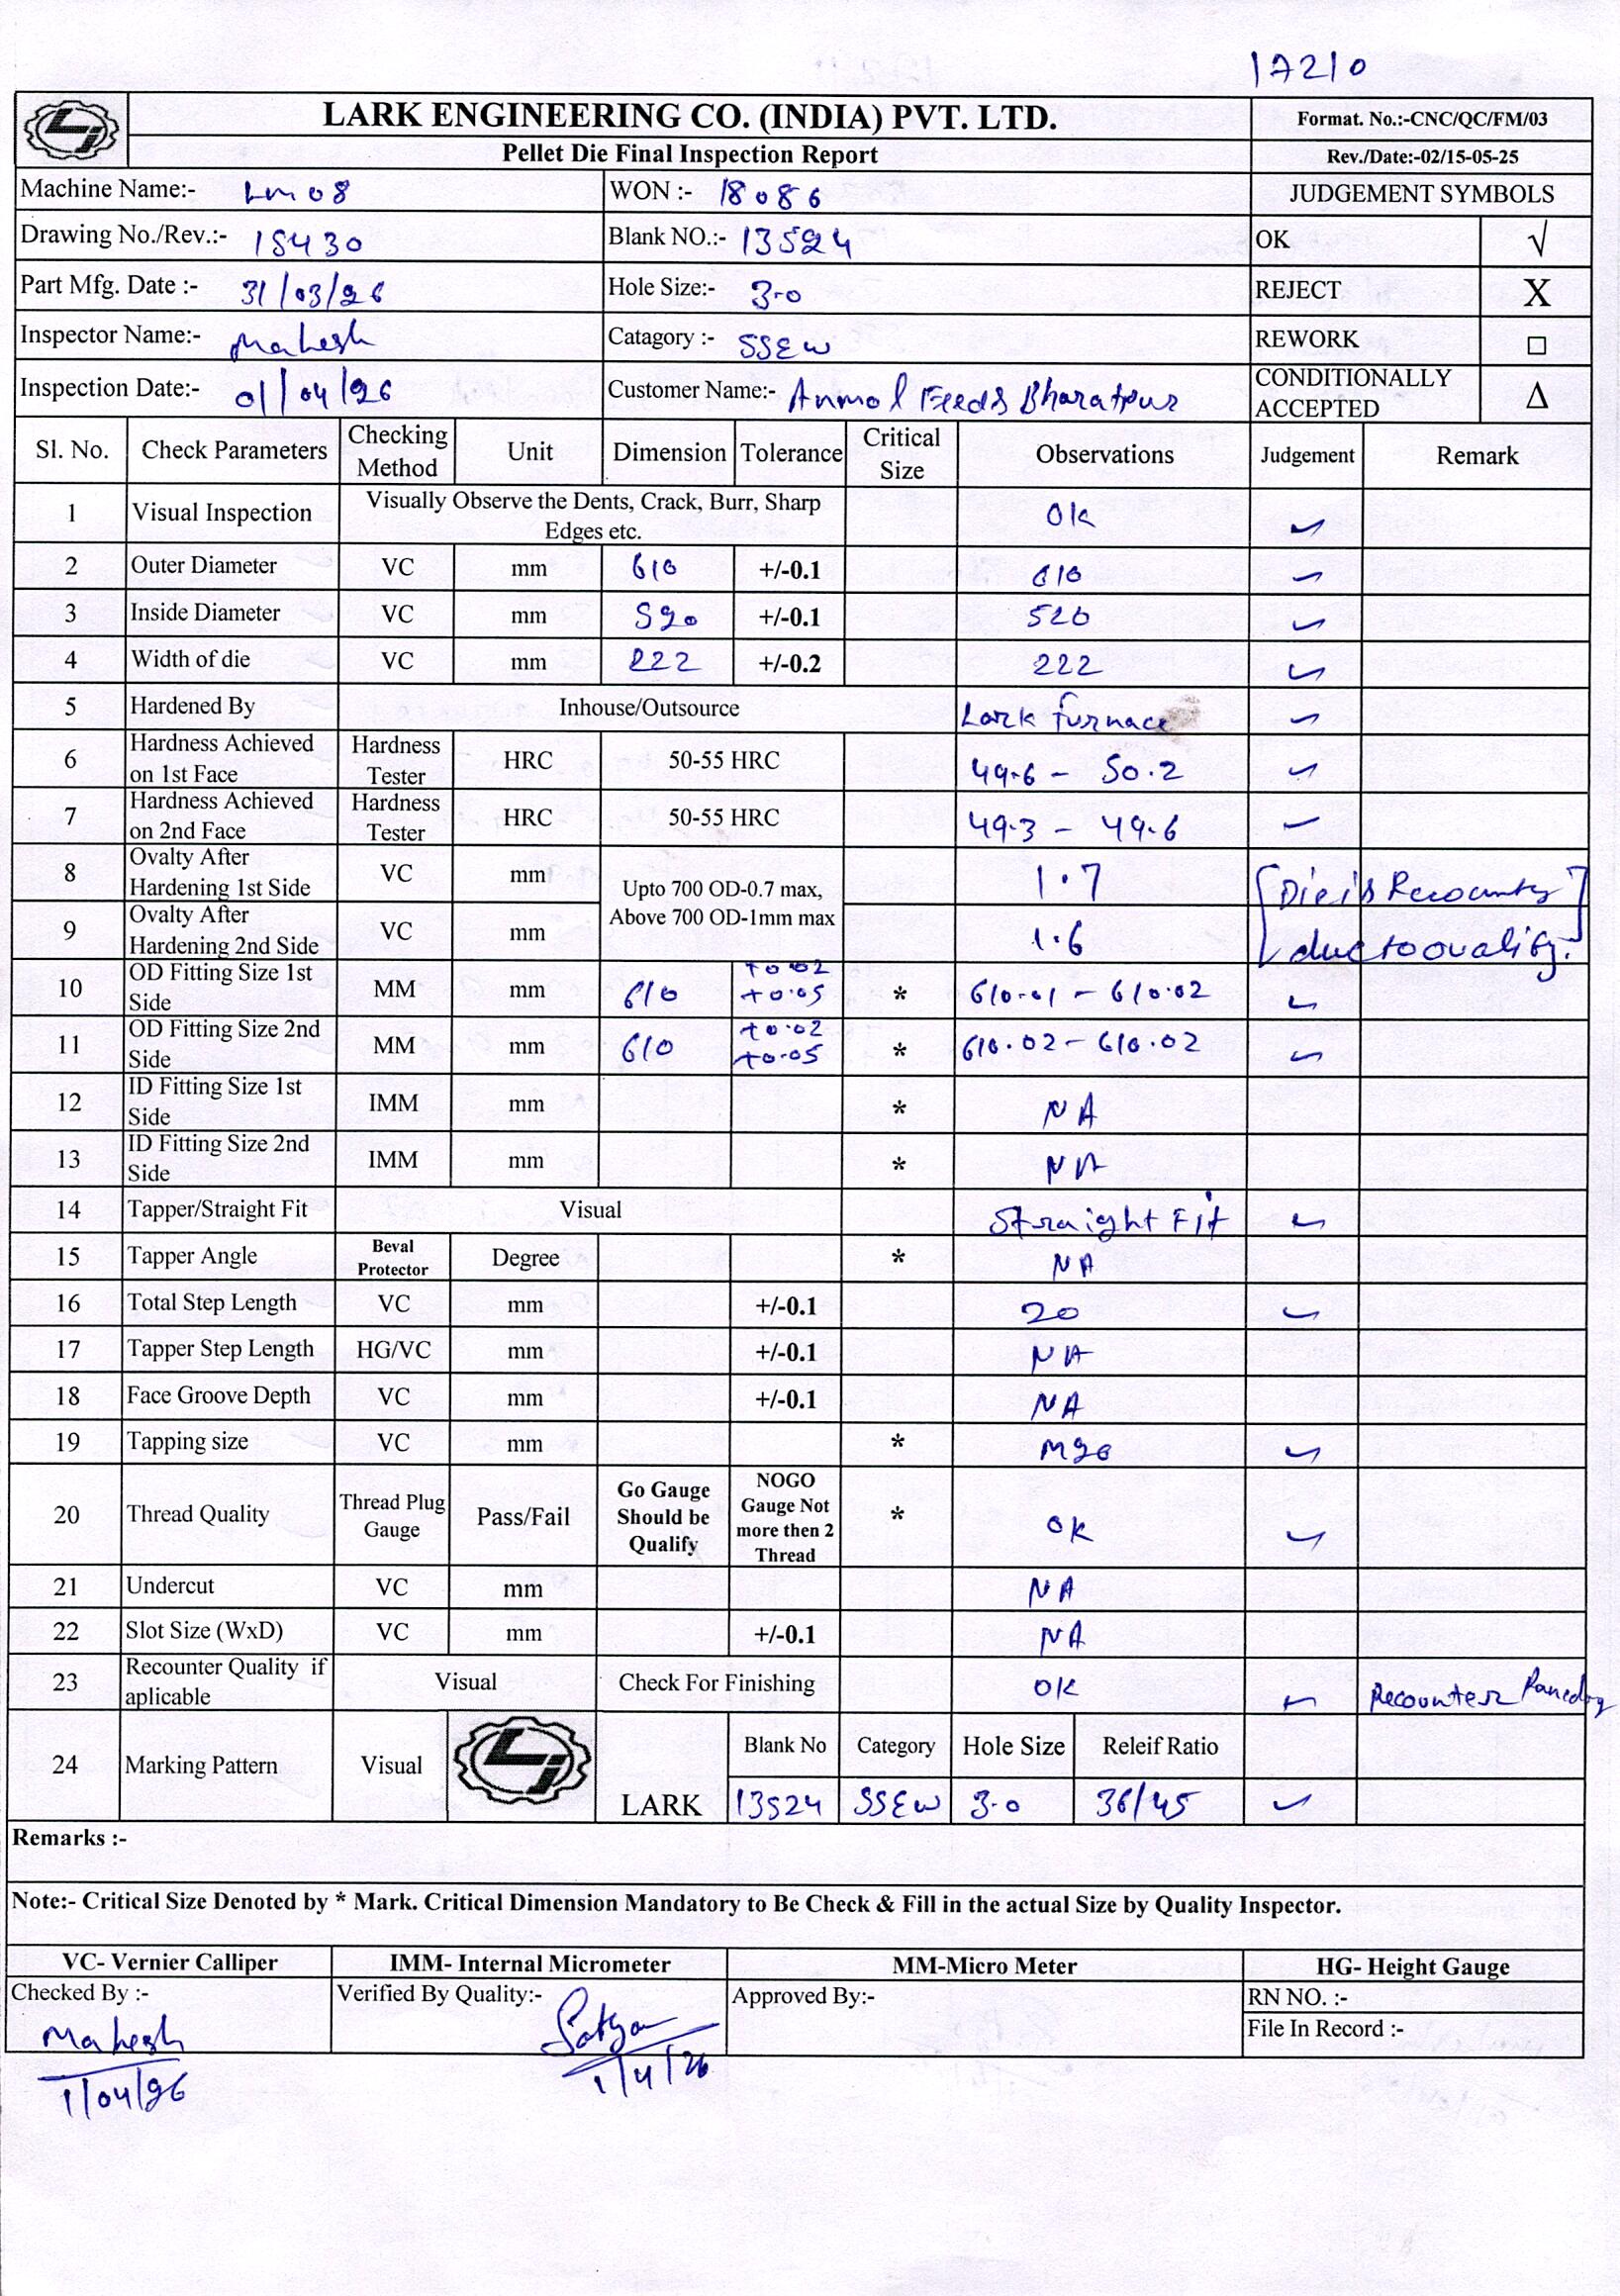 17210
LARK ENGINEERING CO. (INDIA) PVT. LTD.
Format. No.:-CNC/QC/FM/03
Pellet Die Final Inspection Report
Rev./Date:-02/15-05-25
Machine Name:- Lm08 WON :- 18086 JUDGEMENT SYMBOLS
Drawing No./Rev.:- 15430 Blank NO.:- 13524 OK √
Part Mfg. Date :- 31/03/26 Hole Size:- 3.0 REJECT X
Inspector Name:- Mahesh Catagory :- SSEW REWORK □
Inspection Date:- 01/04/26 Customer Name:- Anmol Feeds Bharatpur CONDITIONALLY ACCEPTED Δ
Sl. No. Check Parameters Checking Method Unit Dimension Tolerance Critical Size Observations Judgement Remark
1 Visual Inspection Visually Observe the Dents, Crack, Burr, Sharp Edges etc. Ok ✓
2 Outer Diameter VC mm 610 +/-0.1 610 ✓
3 Inside Diameter VC mm 520 +/-0.1 520 ✓
4 Width of die VC mm 222 +/-0.2 222 ✓
5 Hardened By Inhouse/Outsource Lark furnace ✓
6 Hardness Achieved on 1st Face Hardness Tester HRC 50-55 HRC 49.6 - 50.2 ✓
7 Hardness Achieved on 2nd Face Hardness Tester HRC 50-55 HRC 49.3 - 49.6 ✓
8 Ovalty After Hardening 1st Side VC mm Upto 700 OD-0.7 max, Above 700 OD-1mm max 1.7 [Die is Recounter]
9 Ovalty After Hardening 2nd Side VC mm 1.6 [due to ovality.]
10 OD Fitting Size 1st Side MM mm 610 +0.02 +0.05 * 610.01 - 610.02 ✓
11 OD Fitting Size 2nd Side MM mm 610 +0.02 +0.05 * 610.02 - 610.02 ✓
12 ID Fitting Size 1st Side IMM mm * NA
13 ID Fitting Size 2nd Side IMM mm * NA
14 Tapper/Straight Fit Visual Straight Fit ✓
15 Tapper Angle Beval Protector Degree * NA
16 Total Step Length VC mm +/-0.1 20 ✓
17 Tapper Step Length HG/VC mm +/-0.1 NA
18 Face Groove Depth VC mm +/-0.1 NA
19 Tapping size VC mm * M20 ✓
20 Thread Quality Thread Plug Gauge Pass/Fail Go Gauge Should be Qualify NOGO Gauge Not more then 2 Thread * OK ✓
21 Undercut VC mm NA
22 Slot Size (WxD) VC mm +/-0.1 NA
23 Recounter Quality if aplicable Visual Check For Finishing OK ✓ Recounter
24 Marking Pattern Visual LARK Blank No Category Hole Size Releif Ratio
13524 SSEW 3.0 36/45 ✓
Remarks :-
Note:- Critical Size Denoted by * Mark. Critical Dimension Mandatory to Be Check & Fill in the actual Size by Quality Inspector.
VC- Vernier Calliper IMM- Internal Micrometer MM-Micro Meter HG- Height Gauge
Checked By :- Verified By Quality:- Approved By:- RN NO. :-
File In Record :-
Mahesh Satya
1/04/26 1/4/26